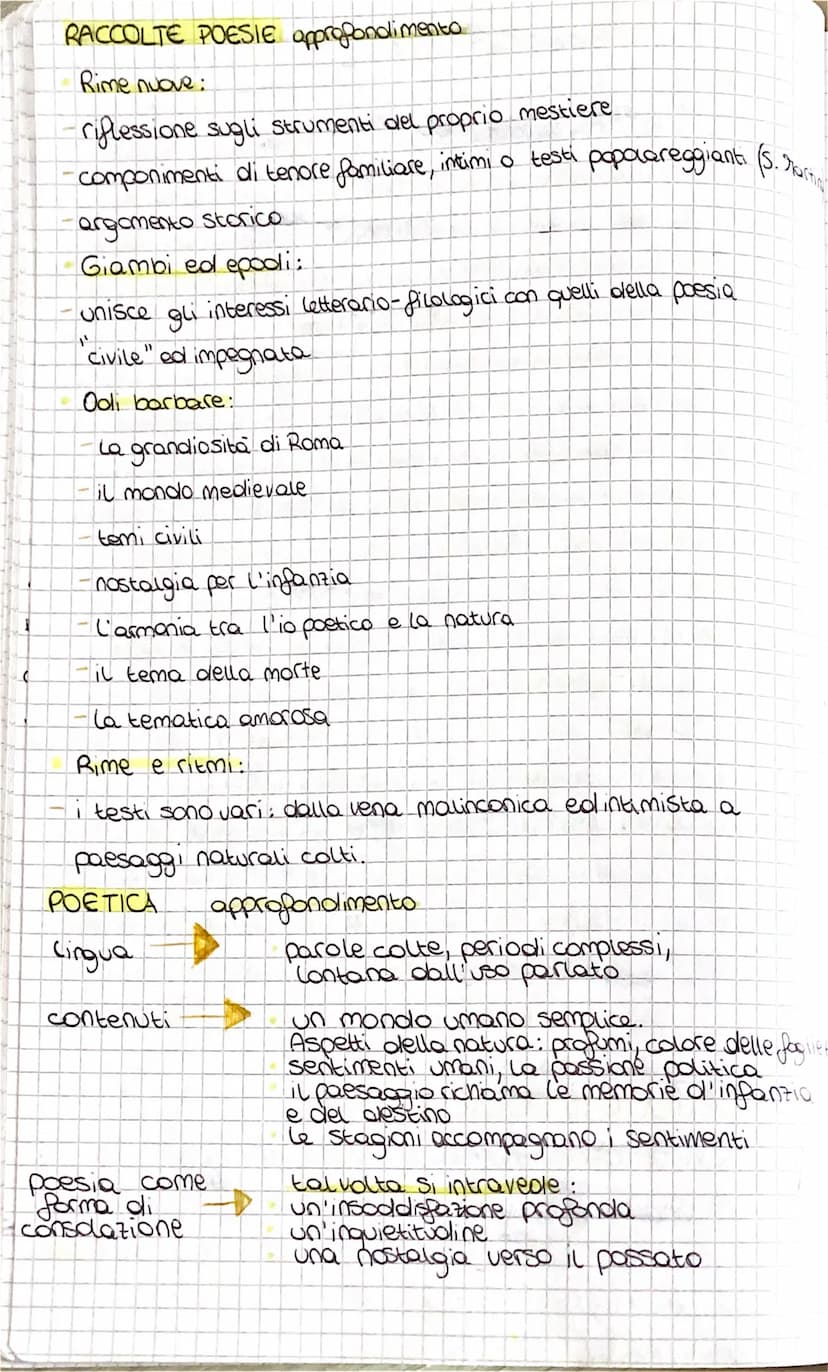 RACCOLTE POESIE approfondimento
Rime nuove:
- riflessione sugli strumenti del proprio mestiere
- componimenti di tenore familiare, intimi o testi popolareggianti (S. Martino
- argomento storico
Giambi ed epodi:
- unisce gli interessi letterario-filologici con quelli della poesia
"civile" ed impegnata
Odi barbare:
- la grandiosità di Roma
- il mondo medievale
- temi civili
- nostalgia per l'infanzia
- l'armonia tra l'io poetico e la natura
- il tema della morte
- la tematica amorosa
Rime e ritmi:
- i testi sono vari: dalla vena malinconica ed intimista a
paesaggi naturali colti.
POETICA approfondimento
lingua
parole colte, periodi complessi,
lontana dall'uso parlato
contenuti
un mondo umano semplice.
Aspetti della natura: profumi, colore delle foglie
sentimenti umani, la passione politica
il paesaggio richiama le memorie d'infanzia
e del destino
le stagioni accompagnano i sentimenti
poesia come
forma di
consolazione
talvolta si intravede:
un'insoddisfazione profonda
un'inquietitudine
una nostalgia verso il passato